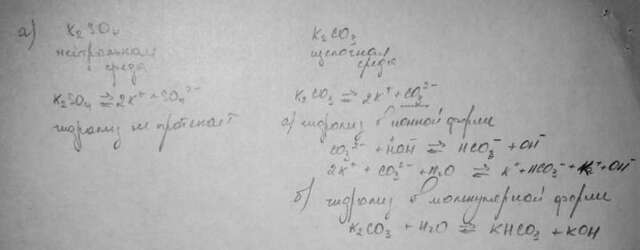 а)
K₂SO₄
нейтральная
среда
K₂SO₄ ⇄ 2K⁺ + SO₄²⁻
гидролиз не протекает
K₂CO₃
щелочная
среда
K₂CO₃ ⇄ 2K⁺ + CO₃²⁻
а) гидролиз в ионной форме
CO₃²⁻ + HOH ⇄ HCO₃⁻ + OH⁻
2K⁺ + CO₃²⁻ + H₂O ⇄ K⁺ + HCO₃⁻ + K⁺ + OH⁻
б) гидролиз в молекулярной форме
K₂CO₃ + H₂O ⇄ KHCO₃ + KOH